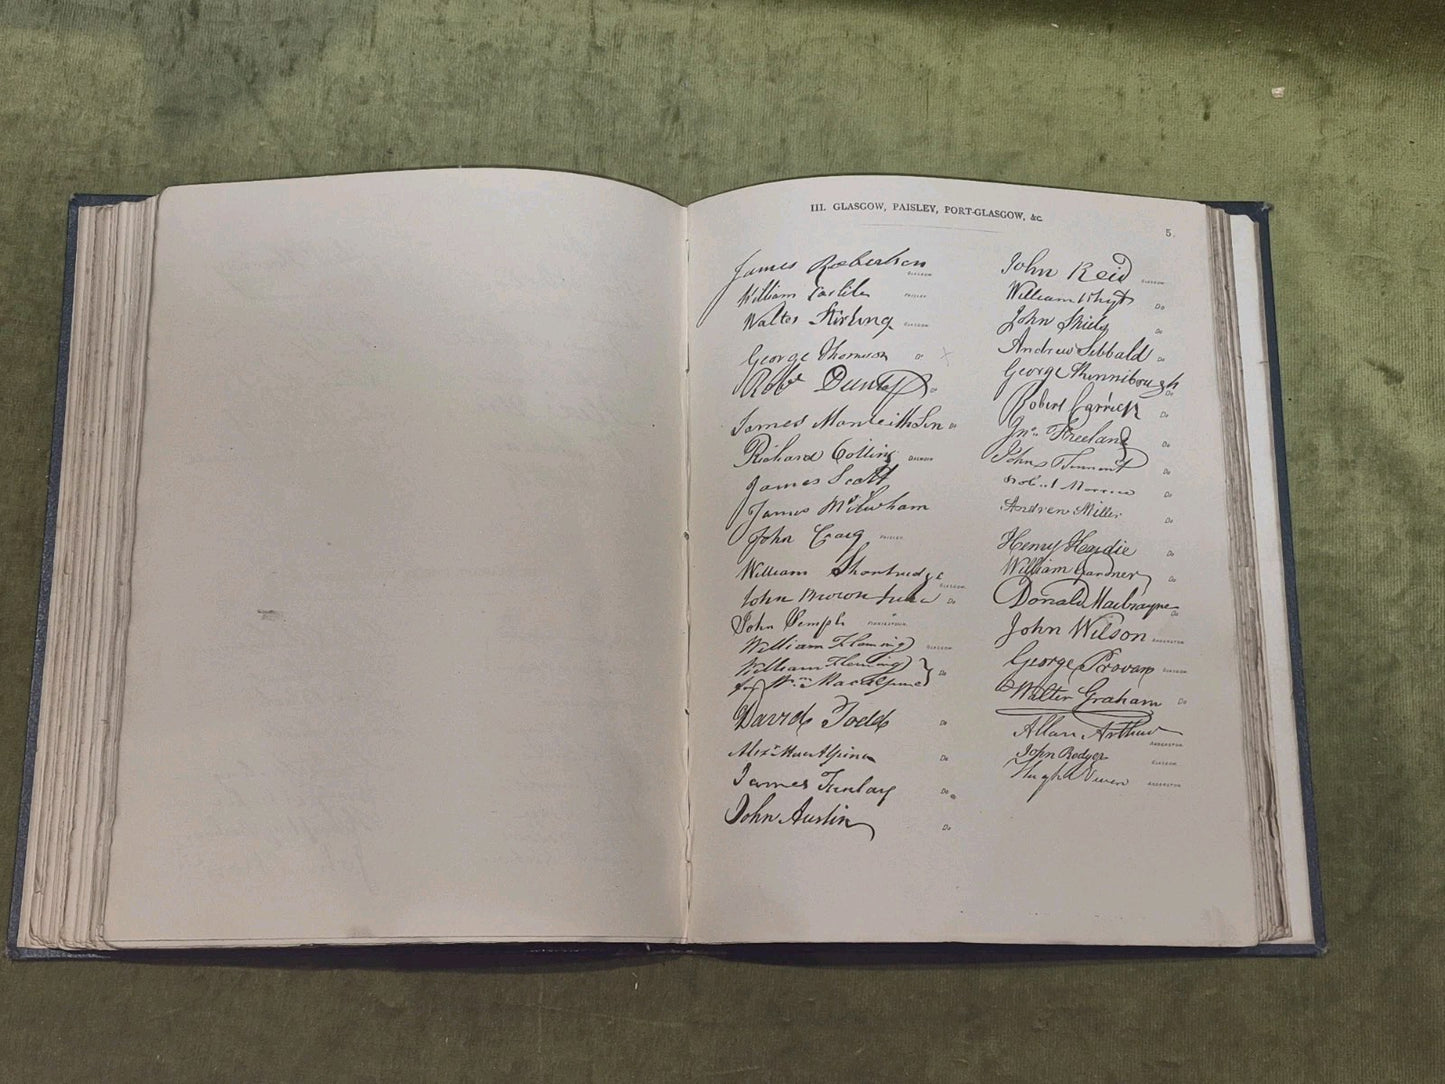 III. GLASGOW, PAISLEY, PORT-GLASGOW, &c.
5.
James Robertson GLASGOW.
William Carlile PAISLEY.
Walter Stirling GLASGOW.
George Thomson Do
Robt Dunlop Do
James Monteith Sen Do
Richard Collins DALMUIR
James Scott
James McIlwham
John Craig PAISLEY.
William Shortridge GLASGOW.
John Brown Do
John Semple
William Fleming GLASGOW.
William Fleming
for Wm MacAlpine Do
David Todd Do
Alexr MacAlpine Do
James Finlay Do
John Austin Do
John Reid GLASGOW.
William Whyte Do
John Do
Andrew Sibbald Do
George Do
Robert Carrick Do
Jno. Freeland Do
John Tennent Do
Robert Do
Andrew Miller Do
Henry Hardie Do
William Gardner Do
Donald Macbrayne Do
John Wilson ANDERSTON.
George Provan GLASGOW.
Walter Graham Do
Allan Arthur ANDERSTON.
John Rodger GLASGOW.
Hugh ANDERSTON.